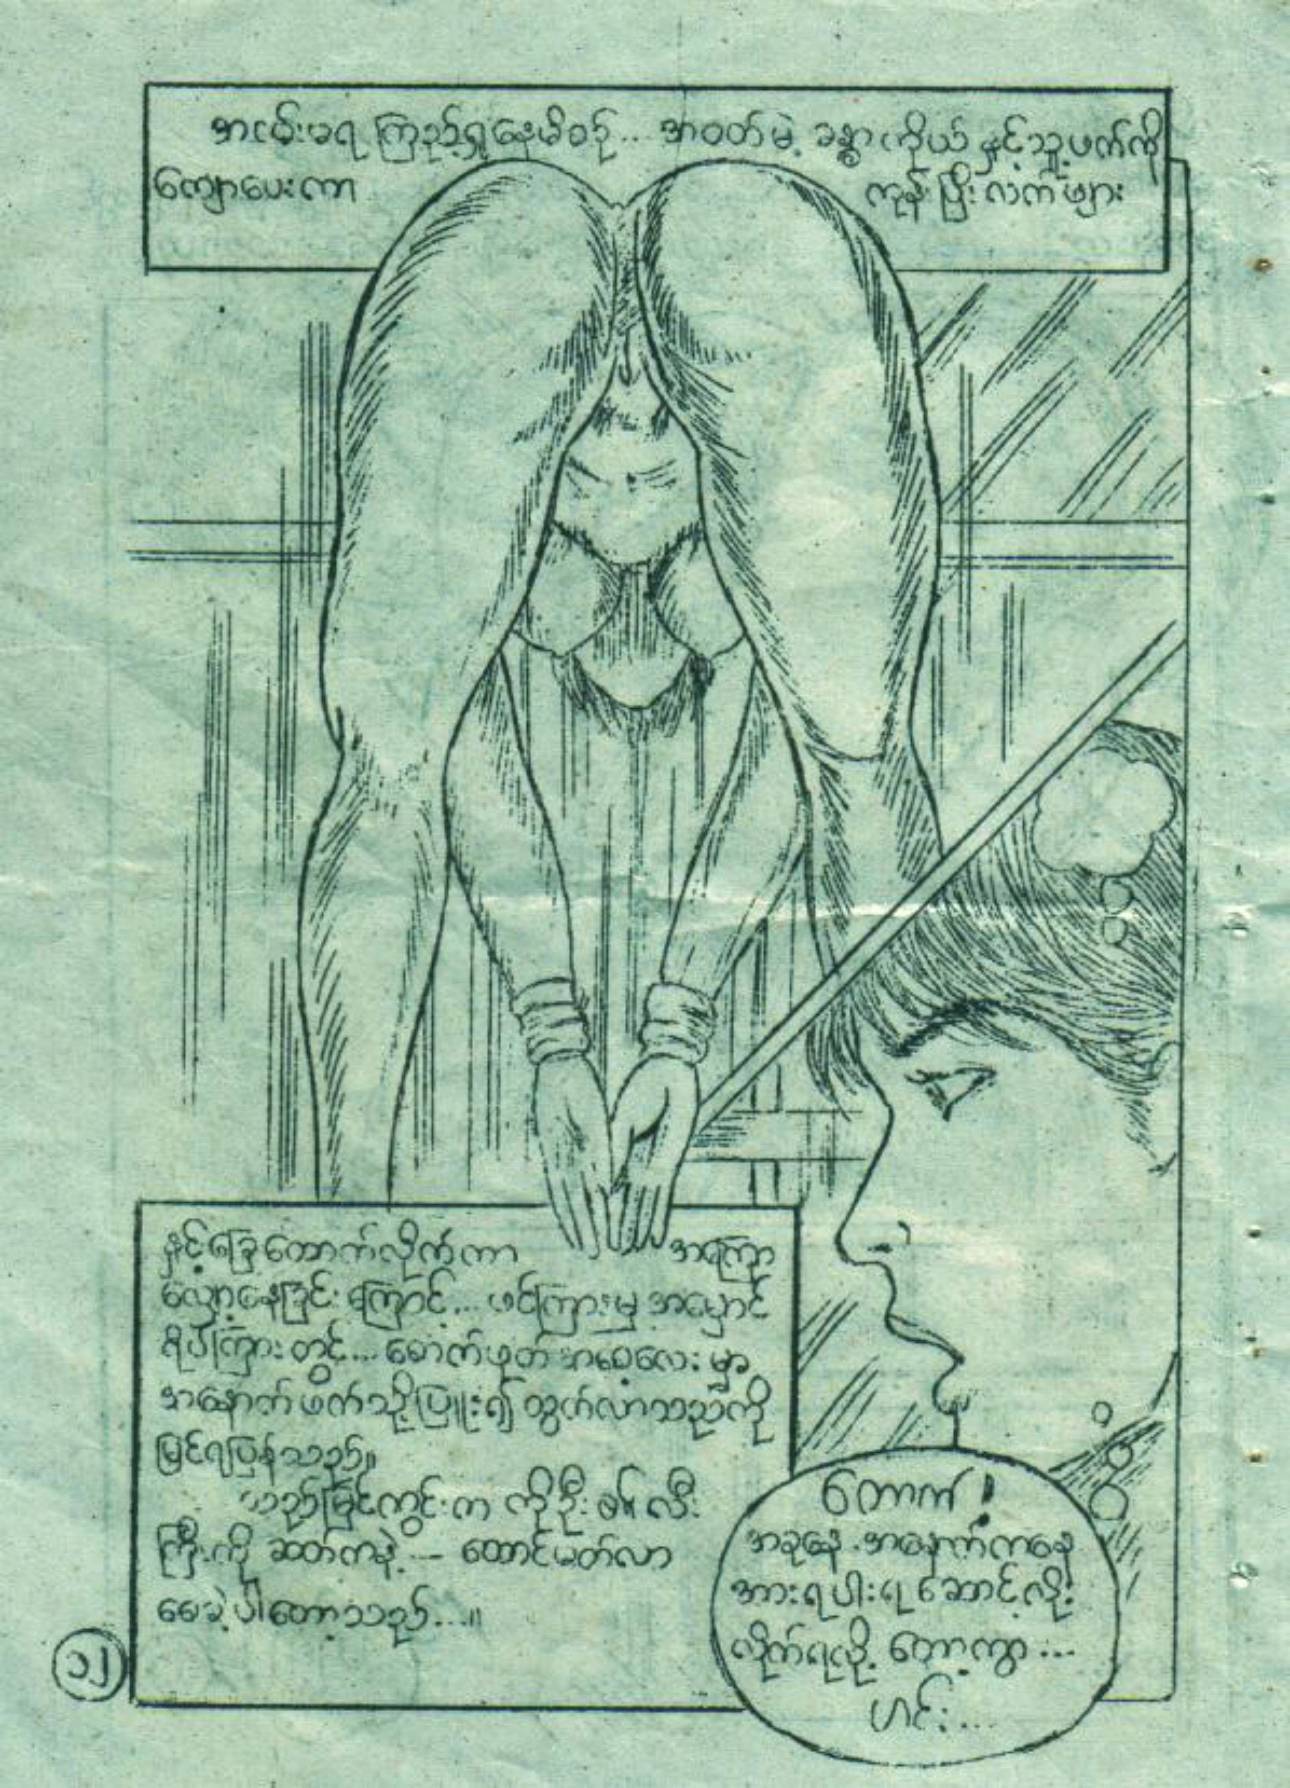 အငမ်းမရ ကြည့်ရှုနေမိစဉ်... အဝတ်မဲ့ ခန္ဓာကိုယ် နှင့်သူ့ဖက်ကို
ကျောပေးကာ ကုန်းပြီး လက်ဖျား
နှင့်ခြေထောက်လိုက်ကာ အကြော
လျှော့နေခြင်းကြောင့်... ဖင်ကြားမှ အမှောင်
ရိပ်ကြားတွင်... စောက်ဖုတ် အစေ့လေးမှာ
အနောက်ဖက်သို့ပြူး၍ ထွက်လာသည်ကို
မြင်ရပြန်သည်။
ယည်မြင်ကွင်းက ကိုဦး လီး
ကြီးကို ဆတ်ကနဲ... ထောင်မတ်လာ
စေခဲ့ပါတော့သည်...။
တောက်!
အခုနေ အနောက်ကနေ
အားရပါးရ ဆောင့်လိုး
လိုက်ရလို့ တော့ကွာ...
ဟင်း...
၁၂